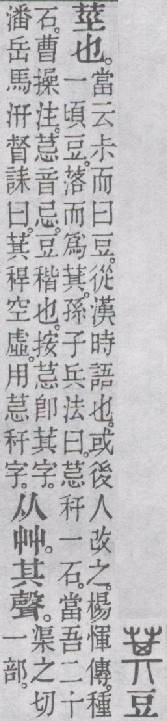 萁豆
莖也。當云尗而曰豆。從漢時語也。或後人改之。楊惲傳。種
一頃豆。落而爲萁。孫子兵法曰。𦮼秆一石。當吾二十
石。曹操注。𦮼音忌。豆稭也。按𦮼卽萁字。
潘岳馬汧督誄曰。萁稈空虛。用𦮼秆字。从艸。其聲。渠之切
一部。